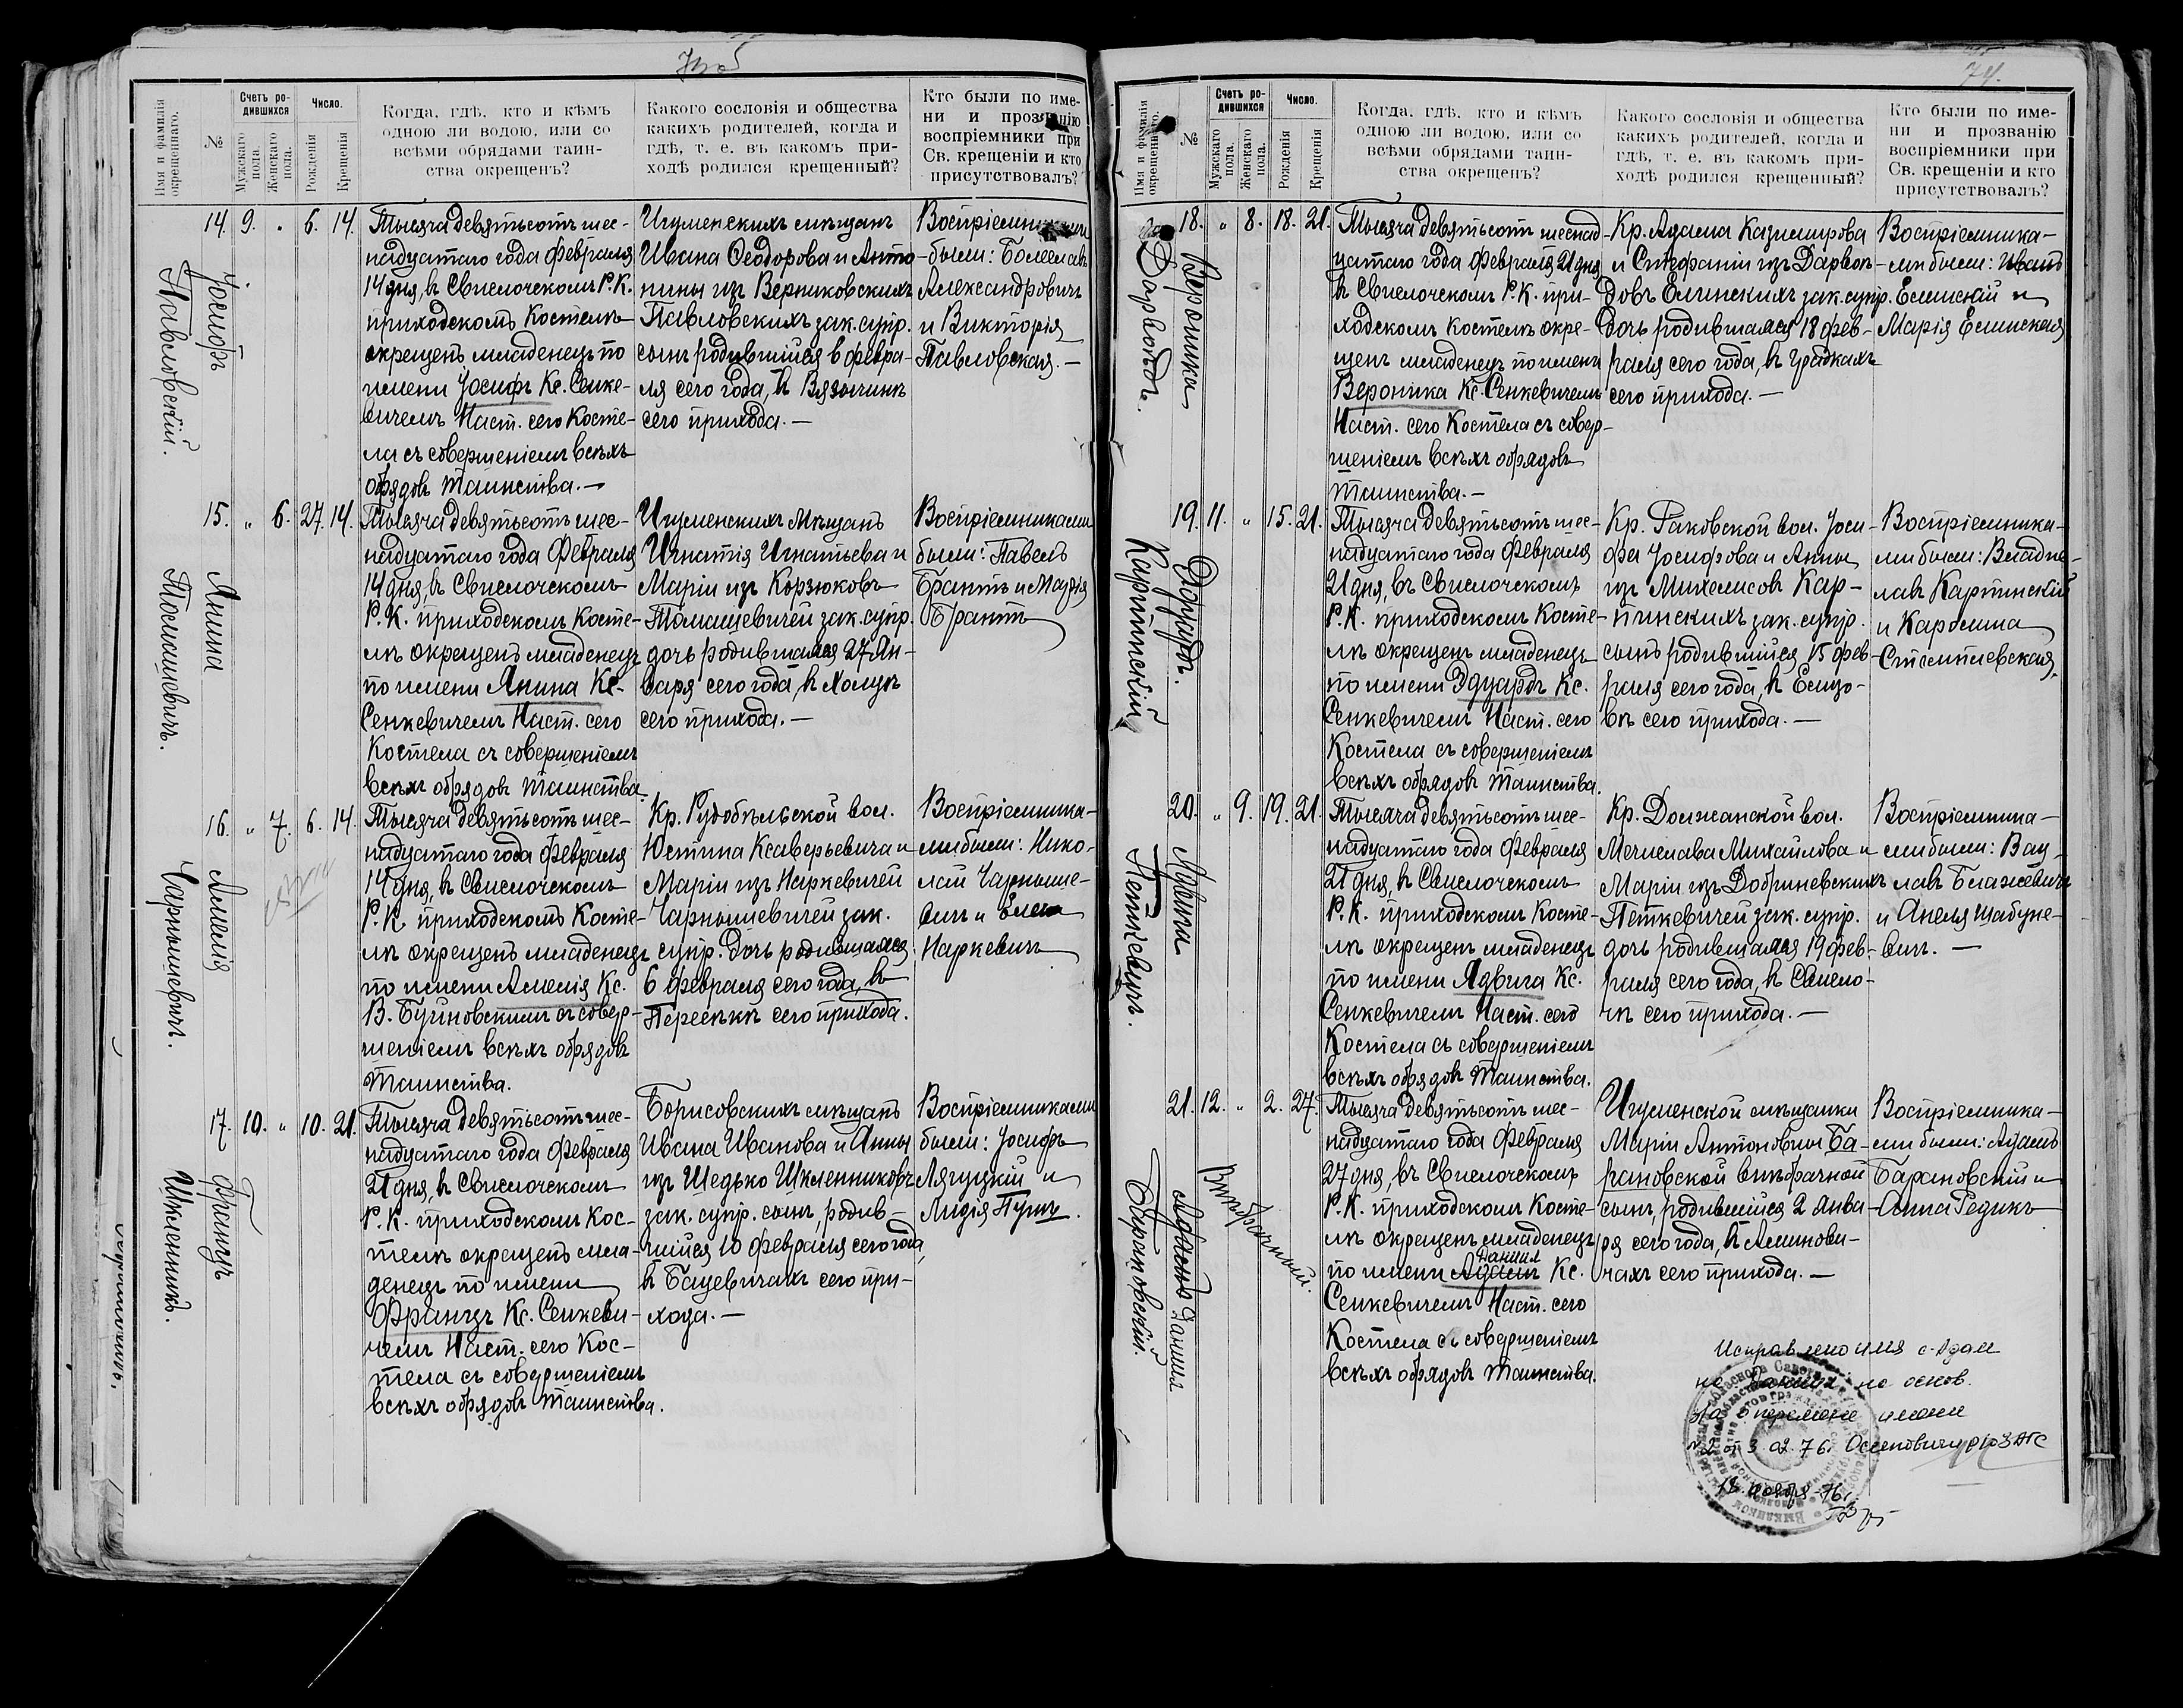 73об
Имя и фамилія окрещеннаго.
№
Счетъ родившихся
Мужскаго пола.
Женскаго пола.
Число.
Рожденія
Крещенія
Когда, гдѣ, кто и кѣмъ
одною ли водою, или со
всѣми обрядами таин-
ства окрещенъ?
Какого сословія и общества
какихъ родителей, когда и
гдѣ, т. е. въ какомъ при-
ходѣ родился крещенный?
Кто были по име-
ни и прозванію
воспріемники при
Св. крещеніи и кто
присутствовалъ?
Іосифъ
Павловскій.
14. 9. „ 6. 14.
Тысяча девятьсотъ шес-
надцатаго года Февраля
14 дня, въ Свислочскомъ Р. К.
приходскомъ Костелѣ
окрещенъ младенецъ по
имени Іосифъ Кс. Сенке-
вичемъ Наст. сего Косте-
ла съ совершеніемъ всѣхъ
обрядовъ таинства. —
Игуменскихъ мѣщанъ
Ивана Ѳеодорова и Анто-
нины изъ Верниковскихъ
Павловскихъ зак. супр.
сынъ родившійся 6 февра-
ля сего года, въ Вязычинѣ
сего прихода. —
Воспріемниками
были: Болеславъ
Александровичъ
и Викторія
Павловская. —
Янина
Томашевичъ.
15. „ 6. 27. 14.
Тысяча девятьсотъ шес-
надцатаго года Февраля
14 дня, въ Свислочскомъ
Р. К. приходскомъ Косте-
лѣ окрещенъ младенецъ
по имени Янина Кс.
Сенкевичемъ Наст. сего
Костела съ совершеніемъ
всѣхъ обрядовъ таинства.
Игуменскихъ Мѣщанъ
Игнатія Игнатьева и
Маріи изъ Корзюковъ
Томашевичей зак. супр.
дочь родившаяся 27 Ян-
варя сего года, въ Холуѣ
сего прихода. —
Воспріемниками
были: Павелъ
Брантъ и Марія
Брантъ
Амелія
Чарнышевичъ.
16. „ 7. 6. 14.
Тысяча девятьсотъ шес-
надцатаго года Февраля
14 дня, въ Свислочскомъ
Р. К. приходскомъ Косте-
лѣ окрещенъ младенецъ
по имени Амелія Кс.
В. Буйновскимъ съ совер-
шеніемъ всѣхъ обрядовъ
таинства.
Кр. Рудобѣльской вол.
Юстина Ксаверьевича и
Маріи изъ Наркевичей
Чарнышевичей зак.
супр. дочь родившаяся
6 февраля сего года, въ
Пересѣкѣ сего прихода.
Воспріемника-
ми были: Нико-
лай Чарныше-
вичъ и Елена
Наркевичъ
Францъ
Шкленникъ.
17. 10. „ 10. 21.
Тысяча девятьсотъ шес-
надцатаго года Февраля
21 дня, въ Свислочскомъ
Р. К. приходскомъ Кос-
телѣ окрещенъ мла-
денецъ по имени
Францъ Кс. Сенкеви-
чемъ Наст. сего Кос-
тела съ совершеніемъ
всѣхъ обрядовъ таинства.
Борисовскихъ мѣщанъ
Ивана Иванова и Анны
изъ Шедько Шкленниковъ
зак. супр. сынъ, родив-
шійся 10 февраля сего года,
въ Бацевичахъ сего при-
хода. —
Воспріемниками
были: Іосифъ
Лягуцкій и
Лидія Пушъ.
74.
Имя и фамилія окрещеннаго.
№
Счетъ родившихся
Мужскаго пола.
Женскаго пола.
Число.
Рожденія
Крещенія
Когда, гдѣ, кто и кѣмъ
одною ли водою, или со
всѣми обрядами таин-
ства окрещенъ?
Какого сословія и общества
какихъ родителей, когда и
гдѣ, т. е. въ какомъ при-
ходѣ родился крещенный?
Кто были по име-
ни и прозванію
воспріемники при
Св. крещеніи и кто
присутствовалъ?
Вероника
Дарводъ.
18. „ 8. 18. 21.
Тысяча девятьсотъ шеснад-
цатаго года Февраля 21 дня
въ Свислочскомъ Р. К. при-
ходскомъ Костелѣ окре-
щенъ младенецъ по имени
Вероника Кс. Сенкевичемъ
Наст. сего Костела съ совер-
шеніемъ всѣхъ обрядовъ
таинства. —
Кр. Адама Казимирова
и Стефаніи изъ Дарвои-
довъ Елинскихъ зак. супр.
дочь родившаяся 18 фев-
раля сего года, въ Градкахъ
сего прихода. —
Воспріемника-
ми были: Иванъ
Елинскій и
Марія Елинская
Эдуардъ.
Карпинскій
19. 11. „ 15. 21.
Тысяча девятьсотъ шес-
надцатаго года Февраля
21 дня, въ Свислочскомъ
Р. К. приходскомъ Косте-
лѣ окрещенъ младенецъ
по имени Эдуардъ Кс.
Сенкевичемъ Наст. сего
Костела съ совершеніемъ
всѣхъ обрядовъ таинства.
Кр. Раковской вол. Іоси-
фа Іосифова и Анны
изъ Михелисовъ Кар-
пинскихъ зак. супр.
сынъ родившійся 15 фев-
раля сего года, въ Елизо-
вѣ сего прихода. —
Воспріемника-
ми были: Владис-
лавъ Карпинскій
и Каролина
Стемпневская.
Ядвига
Петкевичъ.
20. „ 9. 19. 21.
Тысяча девятьсотъ шес-
надцатаго года Февраля
21 дня, въ Свислочскомъ
Р. К. приходскомъ Косте-
лѣ окрещенъ младенецъ
по имени Ядвига Кс.
Сенкевичемъ Наст. сего
Костела съ совершеніемъ
всѣхъ обрядовъ таинства.
Кр. Должанской вол.
Мечислава Михайлова и
Маріи изъ Добриневскихъ
Петкевичей зак. супр.
дочь родившаяся 19 фев-
раля сего года, въ Свисло-
чѣ сего прихода. —
Воспріемника-
ми были: Вац-
лавъ Блажевичъ
и Анеля Шабуне-
вичъ. —
Внѣбрачный.
Адамъ Даниил
Барановскій.
21. 12. „ 2. 27.
Тысяча девятьсотъ шес-
надцатаго года Февраля
27 дня, въ Свислочскомъ
Р. К. приходскомъ Косте-
лѣ окрещенъ младенецъ
Даниил
по имени Адамъ Кс.
Сенкевичемъ Наст. сего
Костела съ совершеніемъ
всѣхъ обрядовъ таинства.
Игуменской мѣщанки
Маріи Антоновны Ба-
рановской внѣбрачной
сынъ, родившійся 2 Янва-
ря сего года, въ Аминови-
чахъ сего прихода. —
Воспріемника-
ми были: Адамъ
Барановскій и
Анна Редикъ
Исправлено имя с Адам
на Даниил на основ.
о перемене имени
№2 от 3.02.76. Осиповичи р ЗАГС